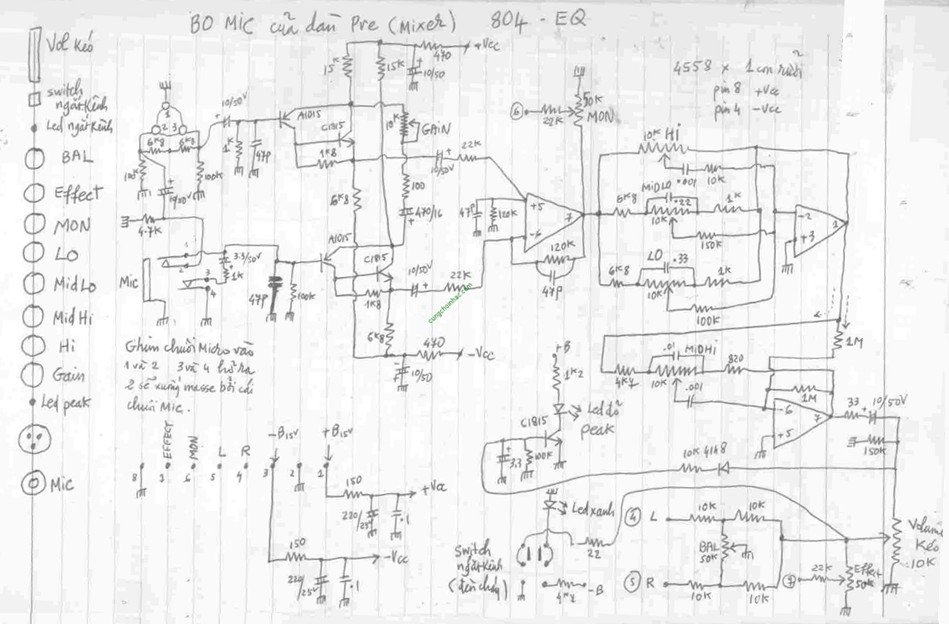 BO MIC của dàn Pre (Mixer) 804 - EQ
Vol kéo
switch
ngắt kênh
Led ngắt kênh
BAL
Effect
MON
LO
MidLo
MidHi
Hi
Gain
Led peak
Mic
4558 x 1 con rưỡi
pin 8 +Vcc
pin 4 -Vcc
15K
15K
470
+Vcc
10/50
1
2
3
6K8
6K8
100K
10/50V
1K
47P
A1015
C1815
1K8
10K
GAIN
100
470/16
10/50V
22K
6K8
4.7K
Mic
1
2
3
4
3.3/50V
1K
47P
100K
A1015
C1815
1K8
10/50V
22K
6K8
470
-Vcc
10/50
congchonhac.com
6
22K
50K
MON
47P
120K
+5
-6
7
120K
47P
10K
Hi
.001
10K
6K8
MIDLO
.22
10K
1K
150K
6K8
LO
.33
10K
1K
100K
-2
+3
1
1M
4K7
.01
MIDHI
10K
820
.001
1M
-6
+5
7
33
10/50V
150K
Ghim chuôi Micro vào
1 và 2 3 và 4 hở ra
2 sẽ xuống masse bởi cái
chuôi Mic.
+B
1K2
Led đỏ
peak
C1815
3.3
100K
10K
4148
EFFECT
MON
L
R
-B15V
+B15V
8
6
5
4
3
2
1
150
+Vcc
220/25V
.1
150
-Vcc
220/25V
.1
Led xanh
22
Switch
ngắt kênh
4K7
-B
4
L
10K
10K
BAL
50K
5
R
10K
10K
7
22K
Effect
50K
Volume
Kéo
10K